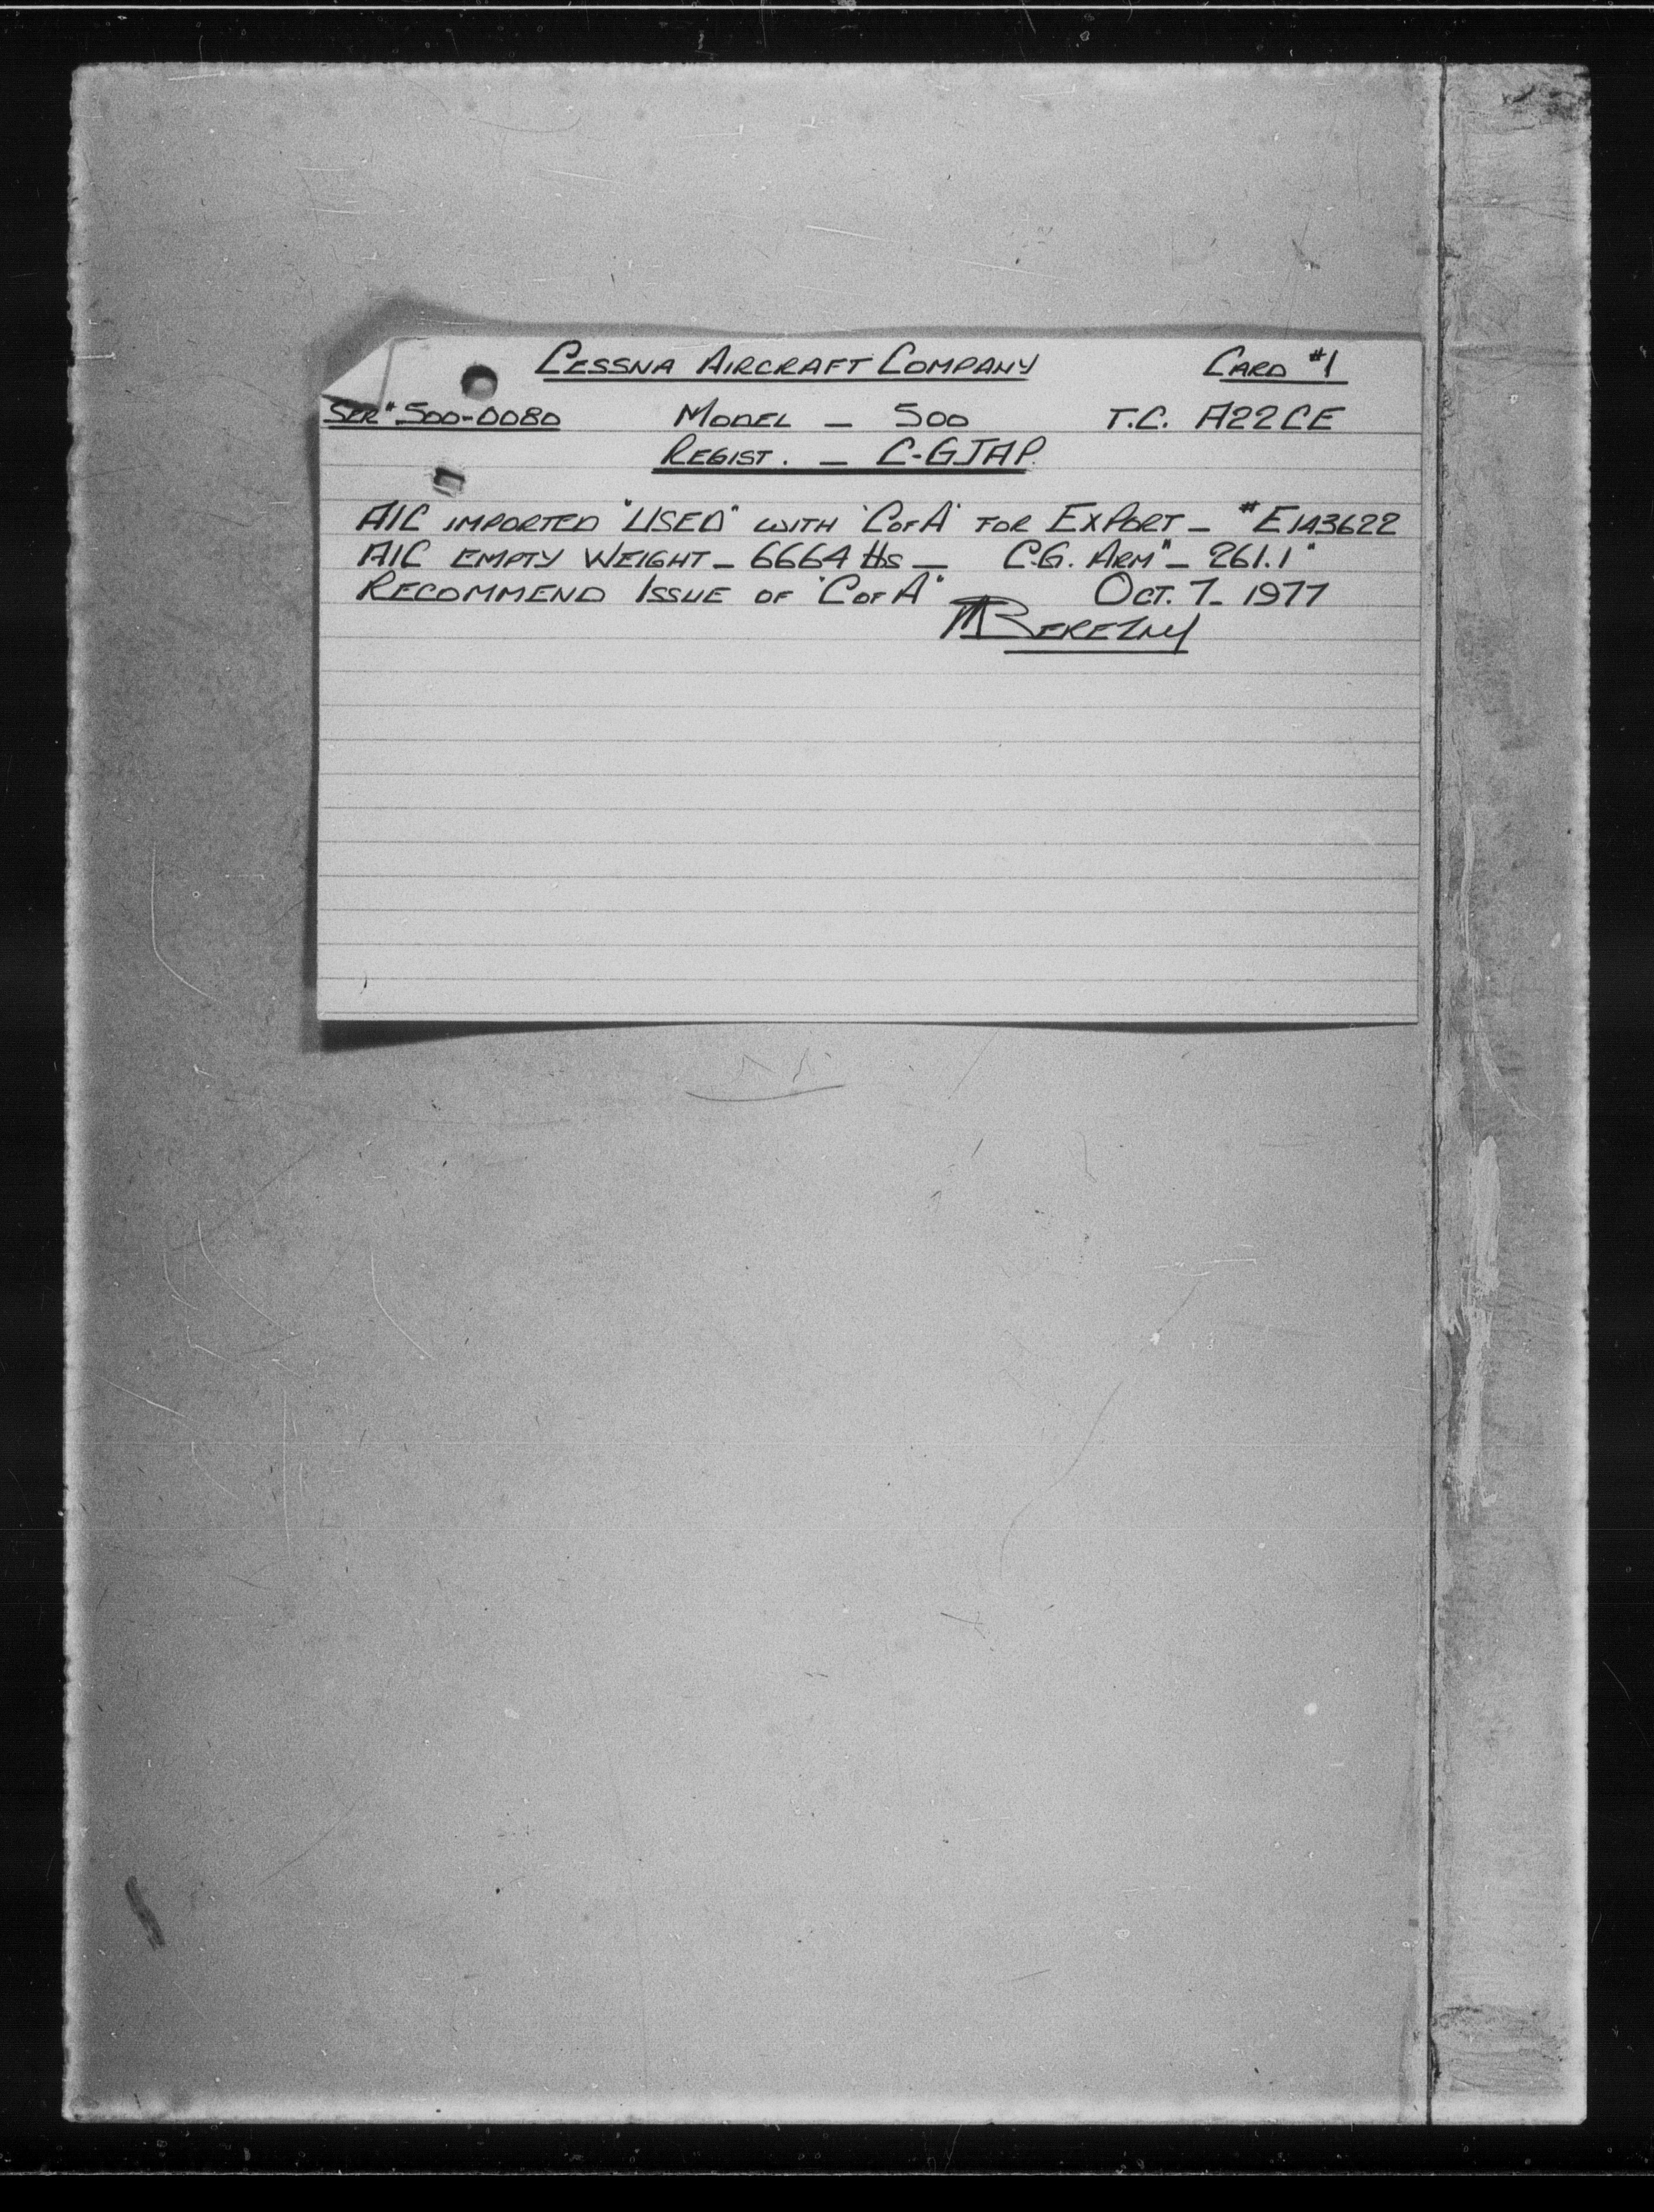 CESSNA AIRCRAFT COMPANY CARD #1
SER# 500-0080 MODEL – 500 T.C. A22CE
REGIST. – C-GJAP.
A/C IMPORTED "USED" WITH 'C of A' FOR EXPORT – #E143622
A/C EMPTY WEIGHT – 6664 lbs – C.G. ARM" – 261.1"
RECOMMEND ISSUE OF 'C of A' OCT. 7 – 1977
BEREZNY